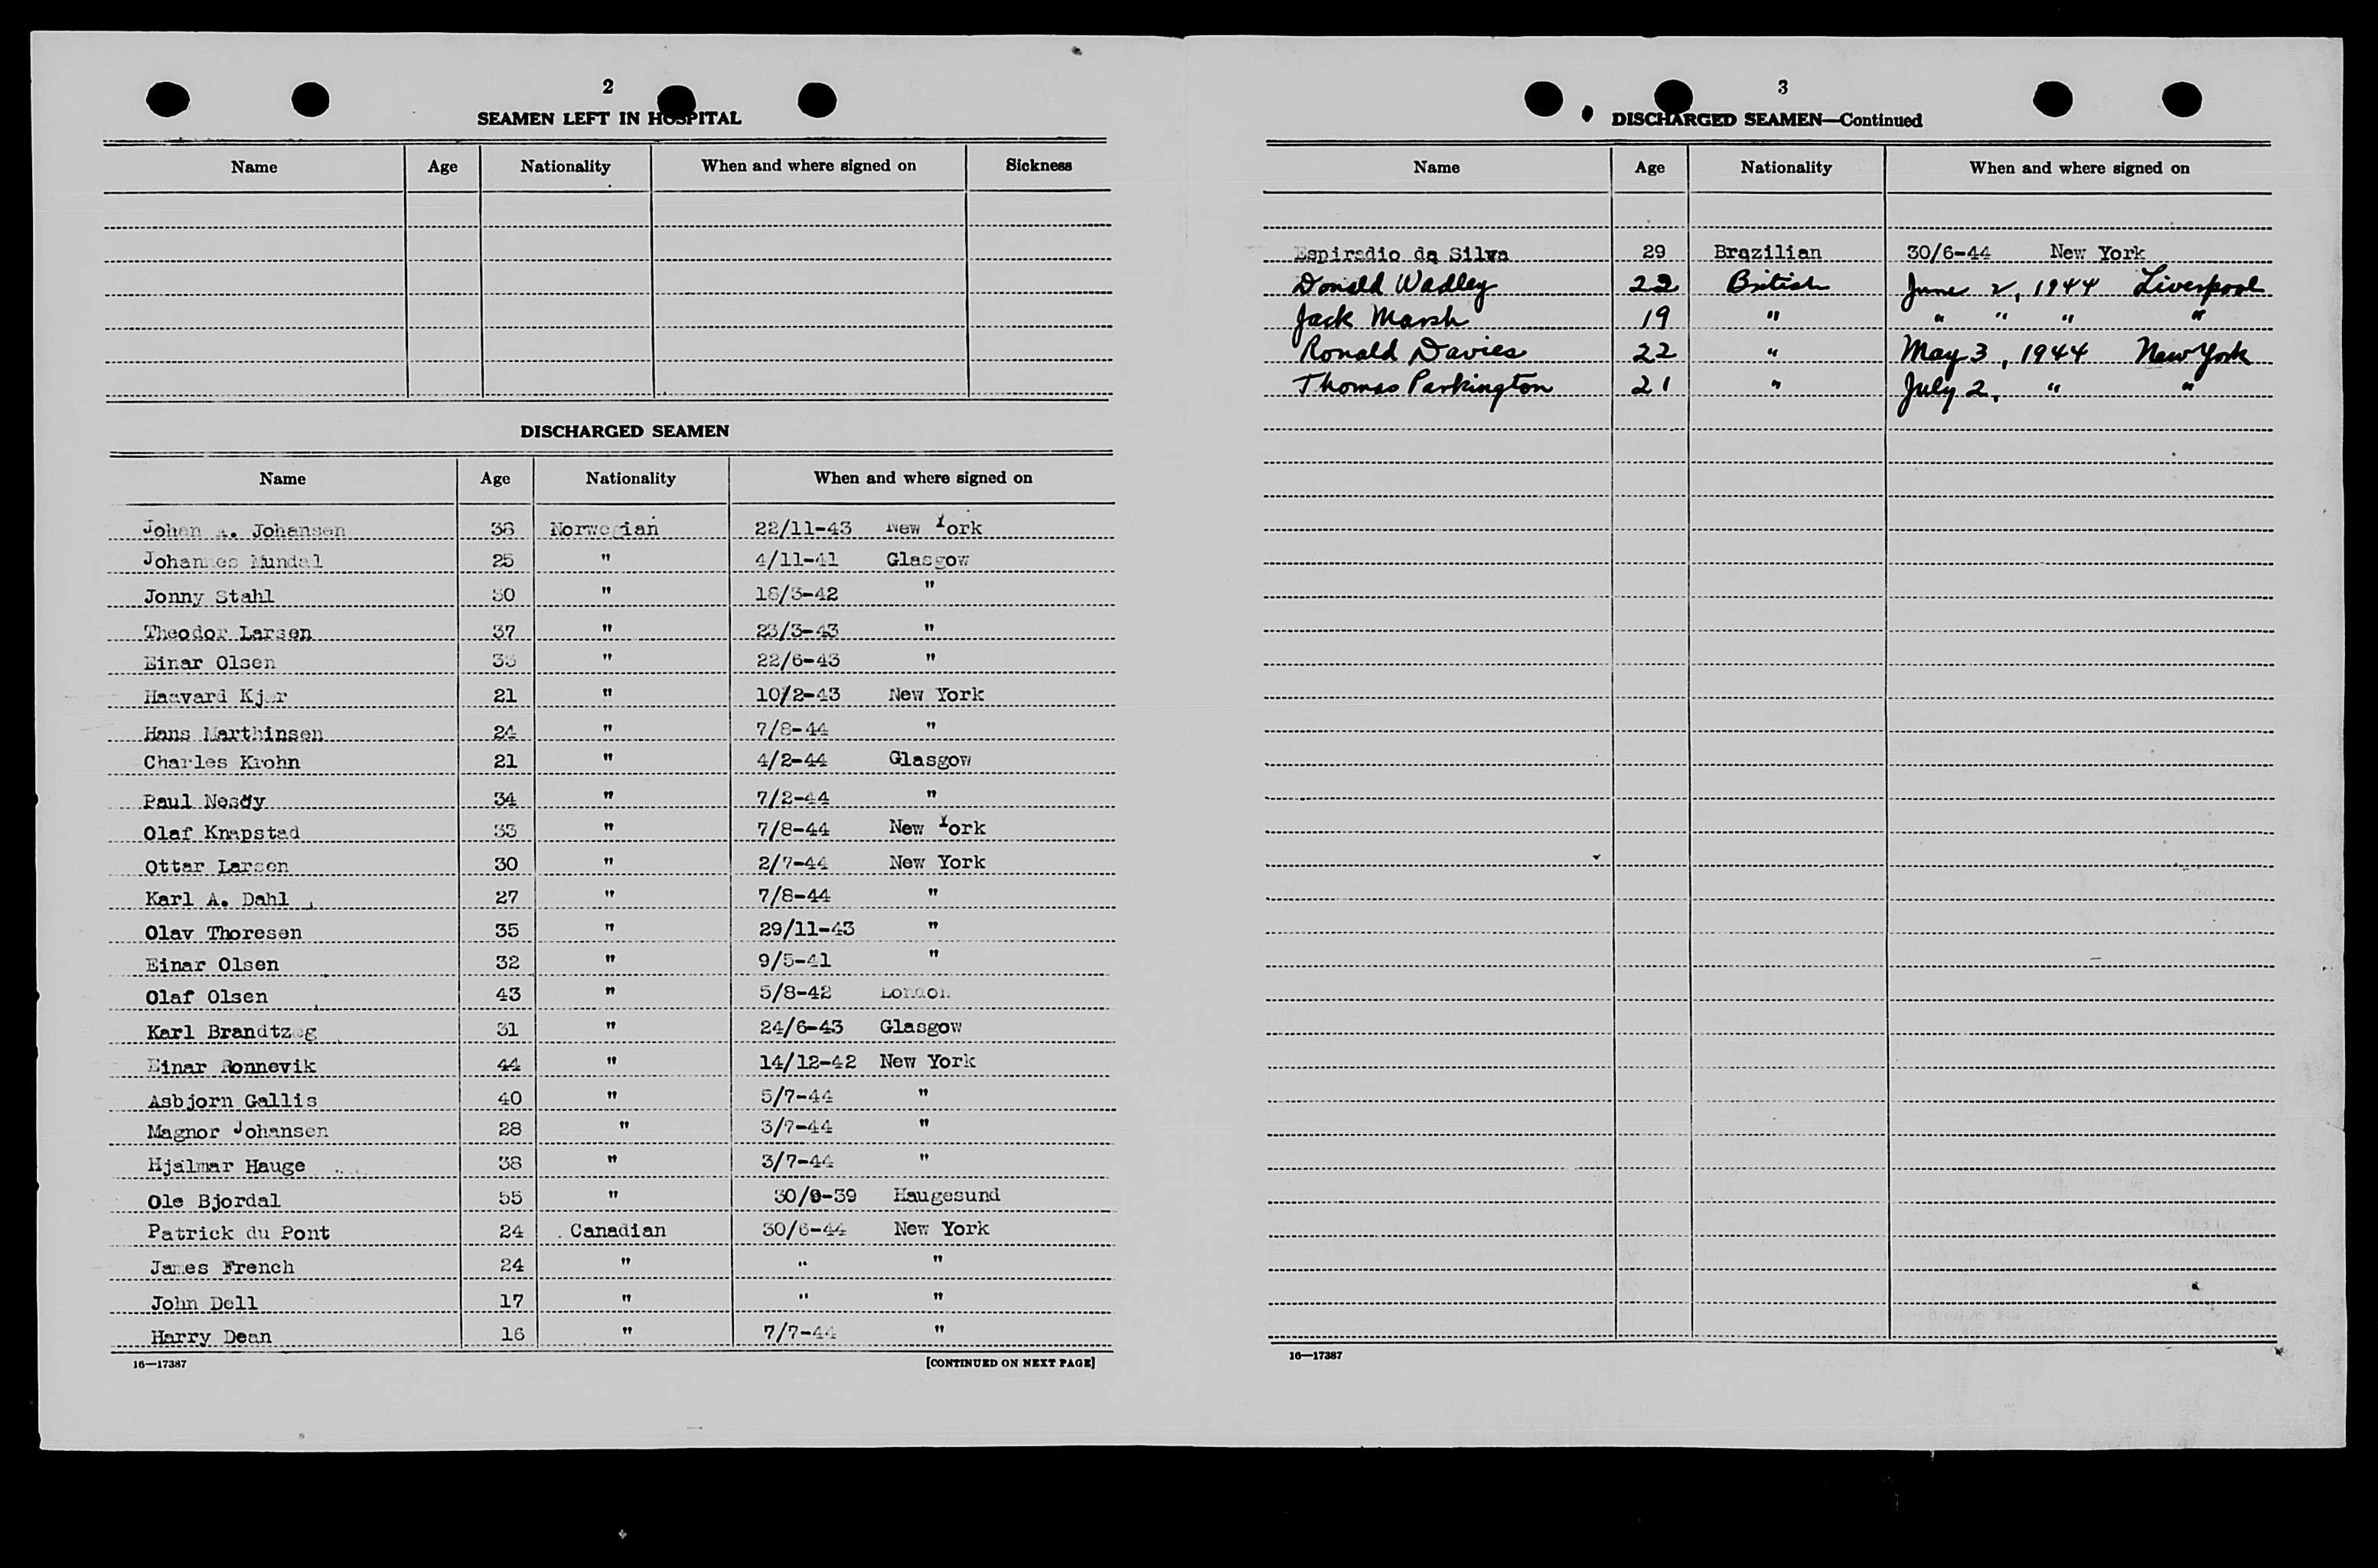 2
SEAMEN LEFT IN HOSPITAL
Name Age Nationality When and where signed on Sickness
DISCHARGED SEAMEN
Name Age Nationality When and where signed on
Johan A. Johansen 36 Norwegian 22/11-43 New York
Johannes Mundal 25 " 4/11-41 Glasgow
Jonny Stahl 30 " 18/3-42 "
Theodor Larsen 37 " 23/3-43 "
Einar Olsen " 22/6-43 "
Haavard 21 " 10/2-43 New York
Hans Marthinsen 24 " 7/8-44 "
Charles Krohn 21 " 4/2-44 Glasgow
Paul 34 " 7/2-44 "
Olaf Knapstad 33 " 7/8-44 New York
Ottar Larsen 30 " 2/7-44 New York
Karl A. Dahl 27 " 7/8-44 "
Olav Thoresen 35 " 29/11-43 "
Einar Olsen 32 " 9/5-41 "
Olaf Olsen 43 " 5/8-42 London
Karl 31 " 24/6-43 Glasgow
Einar Ronnevik 44 " 14/12-42 New York
Asbjorn Gallis 40 " 5/7-44 "
Magnor Johansen 28 " 3/7-44 "
Hjalmar Hauge 38 " 3/7-44 "
Ole Bjordal 55 " 30/9-39 Haugesund
Patrick du Pont 24 Canadian 30/6-44 New York
James French 24 " " "
John Dell 17 " " "
Harry Dean 16 " 7/7-44 "
16—17387 [CONTINUED ON NEXT PAGE]
3
DISCHARGED SEAMEN—Continued
Name Age Nationality When and where signed on
Espiradio da Silva 29 Brazilian 30/6-44 New York
Donald Wadley 22 British June 2, 1944 Liverpool
Jack Marsh 19 " " " " "
Ronald Davies 22 " May 3, 1944 New York
Thomas Parkington 21 " July 2, " "
16—17387